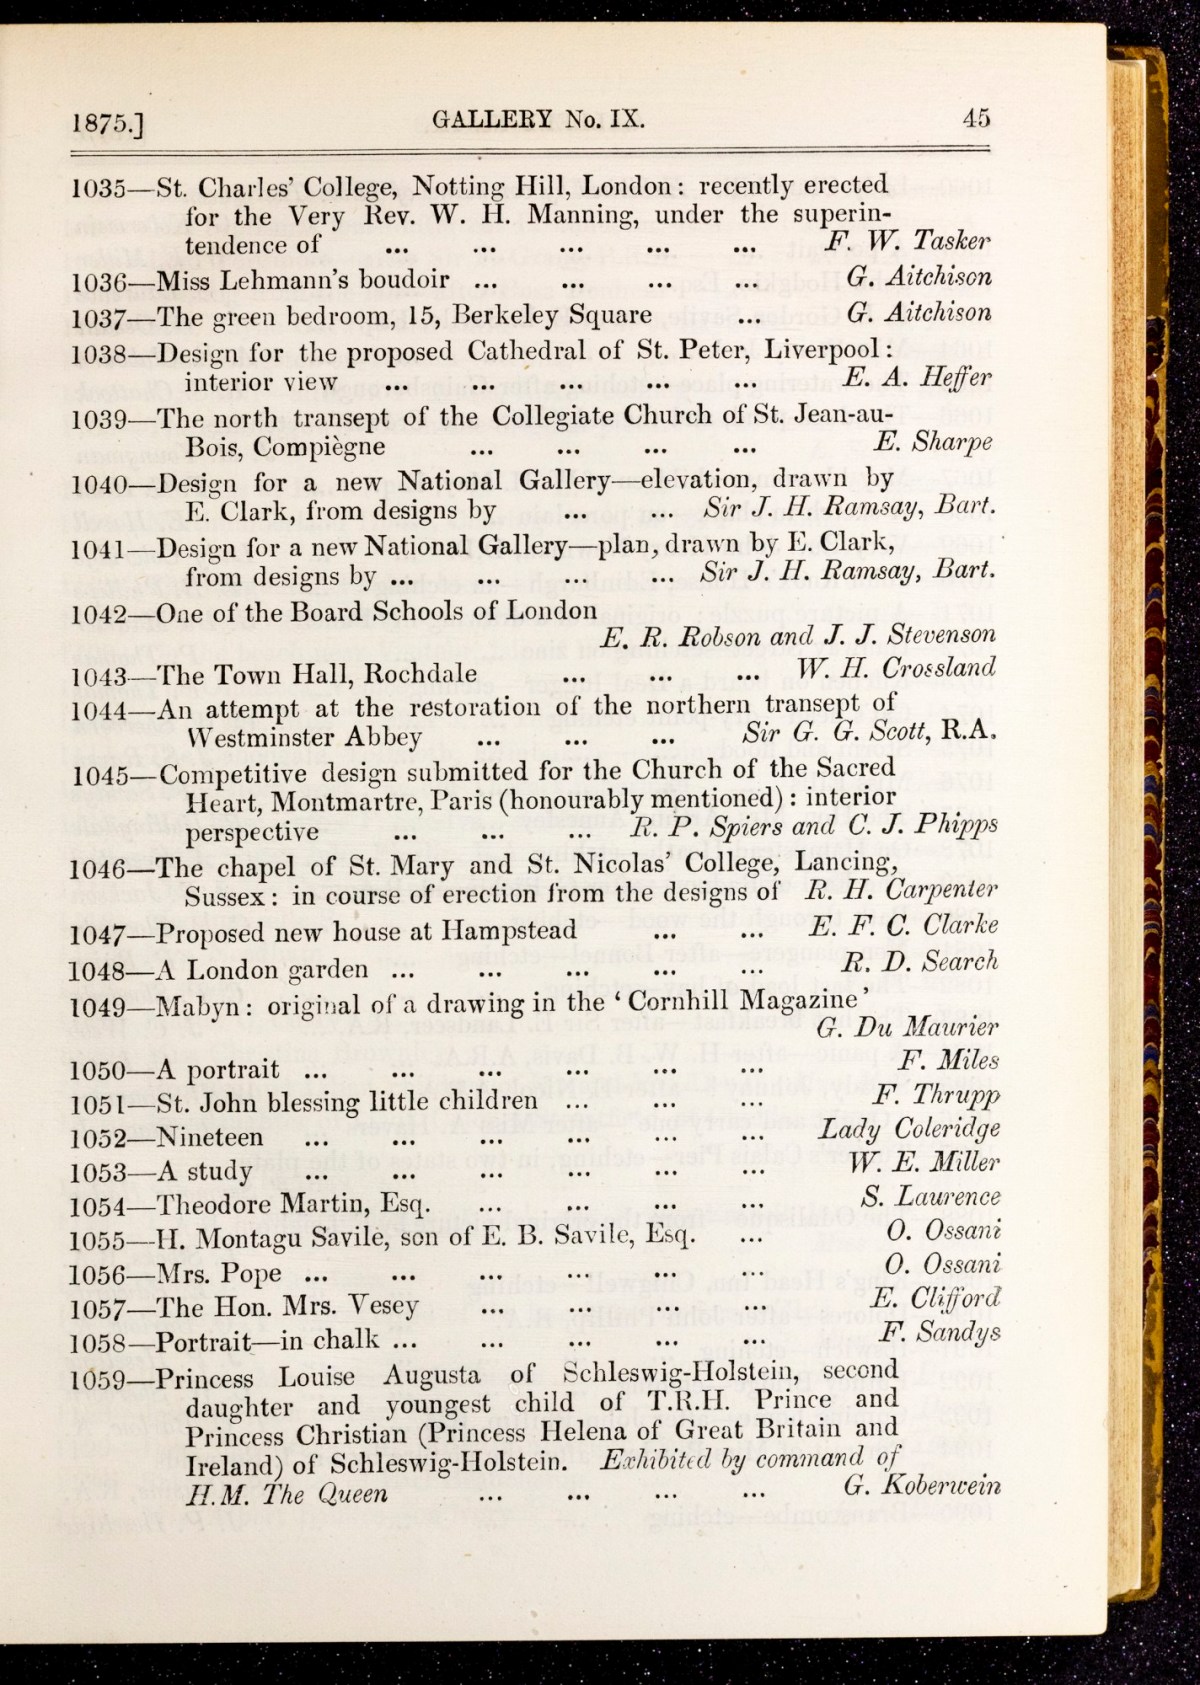 1875.] GALLERY No. IX. 45
1035—St. Charles' College, Notting Hill, London: recently erected
for the Very Rev. W. H. Manning, under the superin-
tendence of ... ... ... ... ... F. W. Tasker
1036—Miss Lehmann's boudoir ... ... ... ... G. Aitchison
1037—The green bedroom, 15, Berkeley Square ... G. Aitchison
1038—Design for the proposed Cathedral of St. Peter, Liverpool:
interior view ... ... ... ... ... E. A. Heffer
1039—The north transept of the Collegiate Church of St. Jean-au-
Bois, Compiègne ... ... ... ... E. Sharpe
1040—Design for a new National Gallery—elevation, drawn by
E. Clark, from designs by ... ... Sir J. H. Ramsay, Bart.
1041—Design for a new National Gallery—plan, drawn by E. Clark,
from designs by ... ... ... ... Sir J. H. Ramsay, Bart.
1042—One of the Board Schools of London
E. R. Robson and J. J. Stevenson
1043—The Town Hall, Rochdale ... ... ... W. H. Crossland
1044—An attempt at the restoration of the northern transept of
Westminster Abbey ... ... ... Sir G. G. Scott, R.A.
1045—Competitive design submitted for the Church of the Sacred
Heart, Montmartre, Paris (honourably mentioned): interior
perspective ... ... ... R. P. Spiers and C. J. Phipps
1046—The chapel of St. Mary and St. Nicolas' College, Lancing,
Sussex: in course of erection from the designs of R. H. Carpenter
1047—Proposed new house at Hampstead ... ... E. F. C. Clarke
1048—A London garden ... ... ... ... ... R. D. Search
1049—Mabyn: original of a drawing in the ‘Cornhill Magazine’
G. Du Maurier
1050—A portrait ... ... ... ... ... ... F. Miles
1051—St. John blessing little children ... ... ... F. Thrupp
1052—Nineteen ... ... ... ... ... ... Lady Coleridge
1053—A study ... ... ... ... ... ... W. E. Miller
1054—Theodore Martin, Esq. ... ... ... ... S. Laurence
1055—H. Montagu Savile, son of E. B. Savile, Esq. ... O. Ossani
1056—Mrs. Pope ... ... ... ... ... ... O. Ossani
1057—The Hon. Mrs. Vesey ... ... ... ... E. Clifford
1058—Portrait—in chalk ... ... ... ... ... F. Sandys
1059—Princess Louise Augusta of Schleswig-Holstein, second
daughter and youngest child of T.R.H. Prince and
Princess Christian (Princess Helena of Great Britain and
Ireland) of Schleswig-Holstein. Exhibited by command of
H.M. The Queen ... ... ... ... G. Koberwein